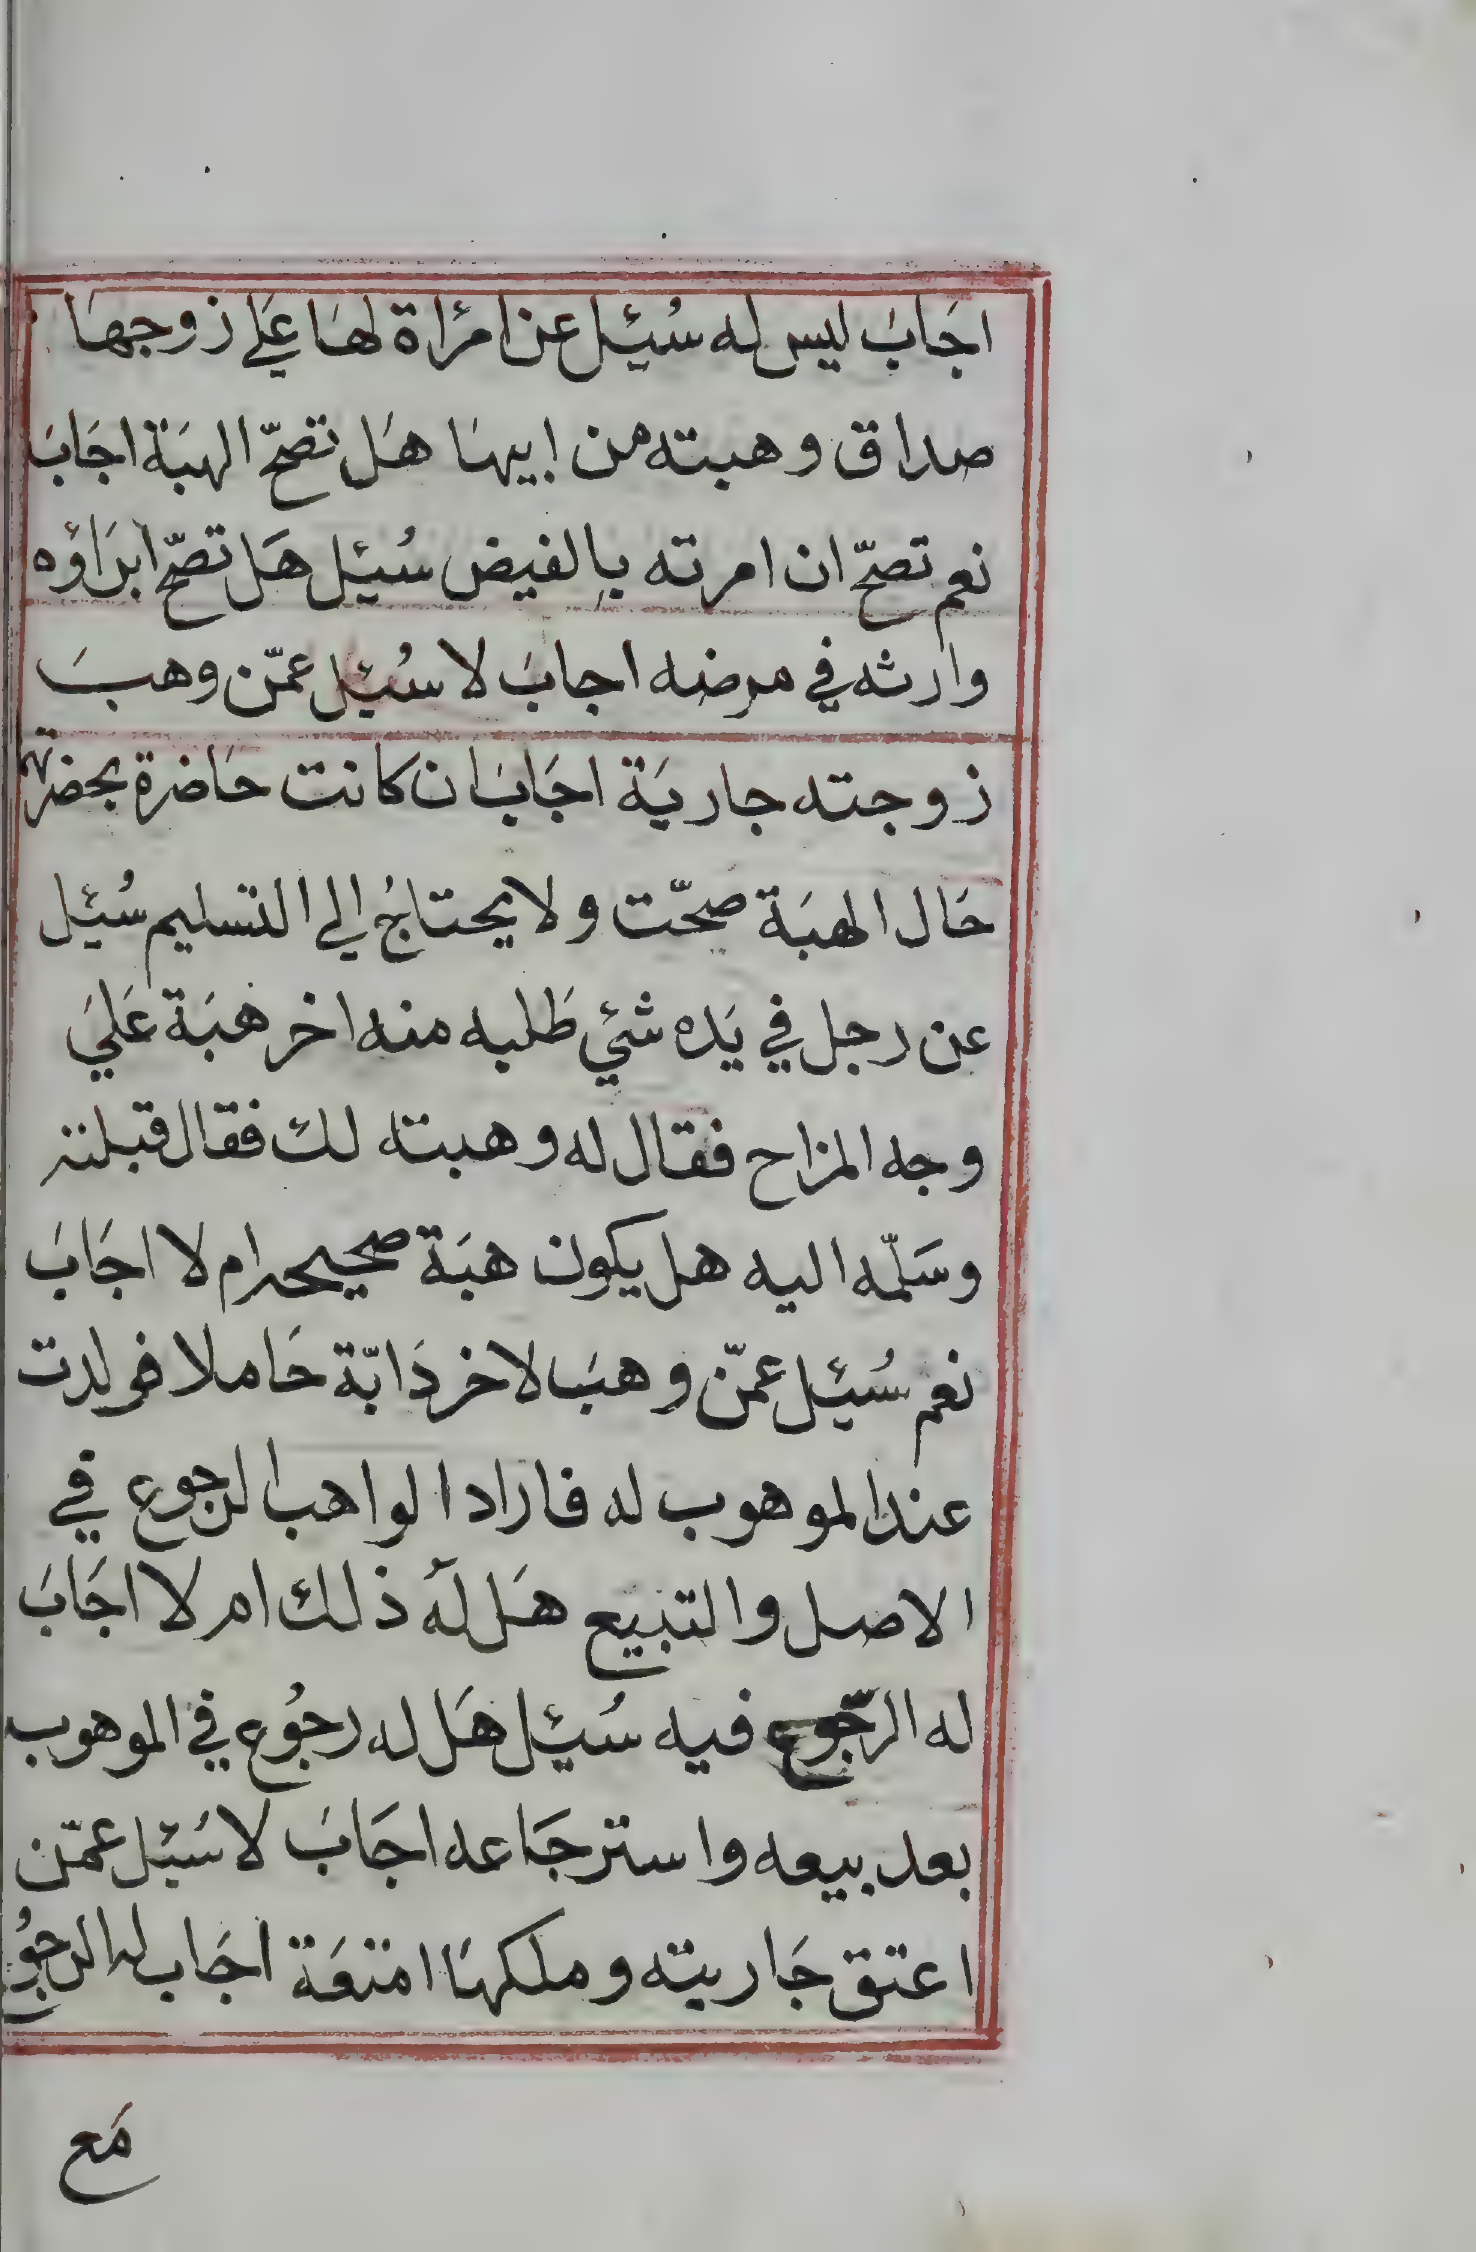 اجَابَ ليس له سُئِل عن امرُاة لهَا عَلي زوجهَا
صداق وهبته من ابيهَا هَل تصحّ الهبَة اجَابَ
نعم تصحّ ان امرته بالفيض سُئِل هَل تصحّ ابرَاؤه
وارثه في مرضه اجابَ لا سُئِل عمّن وهبَ
زوجته جاريَة اجَابَ ان كانت حَاضرة بحضرتهما
حَال الهبَة صحّت ولا يحتاجُ الي التسليم سُئِل
عن رجل في يَده شئي طَلبه منه اخر هبَة عَليَ
وجه المزاح فقال له وهبته لك فقال قبلت
وسَلّمه اليه هل يكون هبَة صحيحه ام لا اجَابَ
نعم سُئِل عمّن وهبَ لاخر دَابّة حَاملا فولدت
عند الموهوب له فاراد الواهب الرجوع في
الاصل والتبيع هَل لَه ذلك ام لا اجَابَ
له الرّجوع فيه سُئِل هَل له رجُوع في الموهوب
بعد بيعه واسترجَاعه اجَابَ لا سُئِل عمّن
اعتق جَاريته وملكهَا امتعَة اجَاب له الرجوُع
مَع